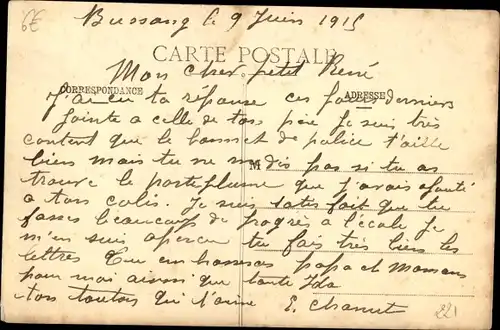 6E
Bussang le 9 Juin 1915
CARTE POSTALE
Mon cher petit René
CORRESPONDANCE
ADRESSE
J'ai eu ta réponse ces jours derniers
jointe a celle de ton père Je suis très
content que le bonnet de police t'aille
bien mais tu ne me dis pas si tu as
M
trouve le porteplume que j'avais ajouté
a ton colis. Je suis satisfait que tu
fasses beaucoup de progrès a l'école Je
m'en suis aperçu tu fais très bien les
lettres Tu embrasseras papa et maman
pour moi ainsi que tante Ida
ton tonton qui t'aime E. Chanut
221